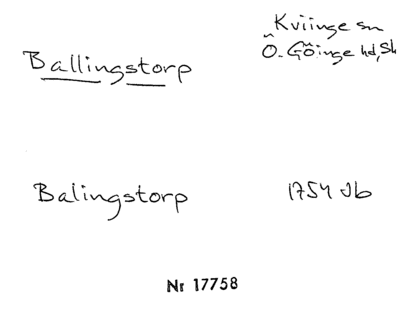 Ballingstorp
Kviinge sn
Ö. Göinge hd, Sk
Balingstorp
1754 Jb
Nr 17758